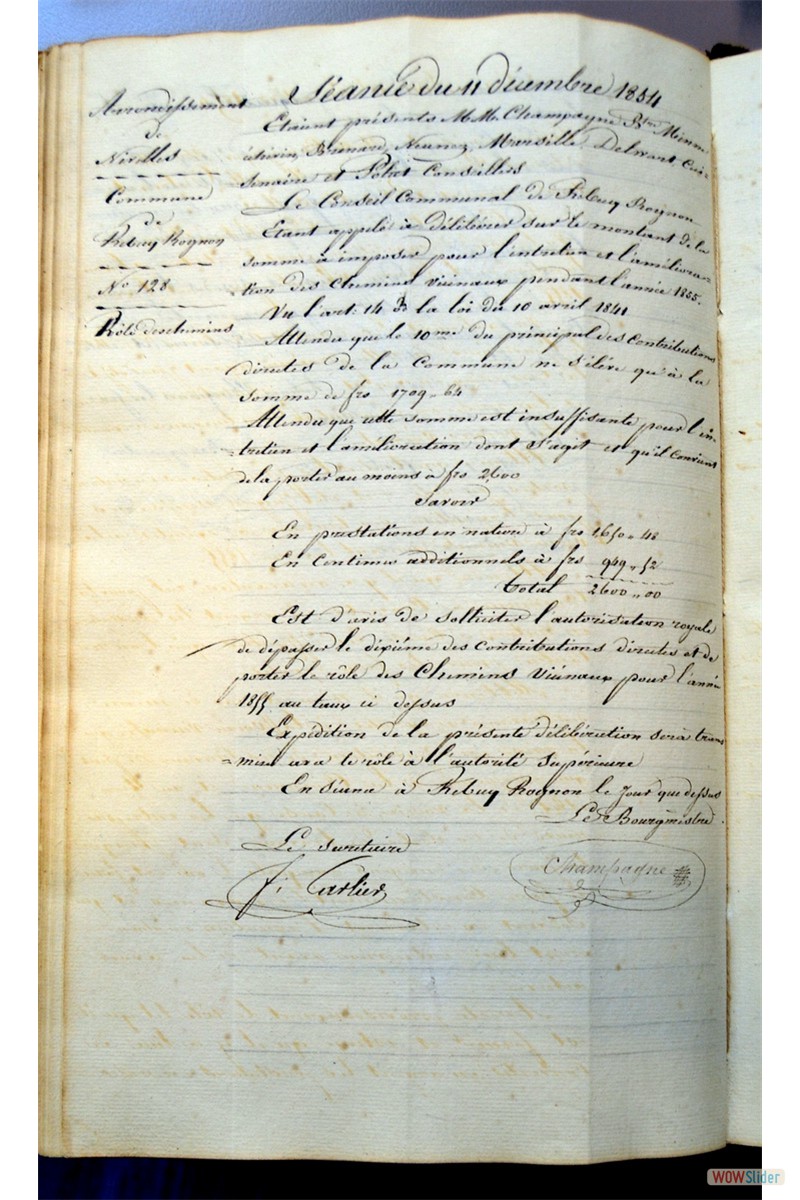 Séance du 11 décembre 1854
Arrondissement
de
Nivelles
Commune
de
Rebecq Rognon
N° 128
Rôle des chemins
Etaient présents M.M. Champagne Bre
Brénard, Neunez, Marsille Delvaut
et Polet Conseillers
Le Conseil Communal de Rebecq Rognon
Etant appelé à délibérer sur le montant de la
somme à imposer pour l'entretien et l'améliora=
tion des chemins vicinaux pendant l'année 1855.
Vu l'art: 14 de la loi du 10 avril 1841
Attendu que le 10me du principal des contributions
directes de la Commune ne s'élève qu'à la
somme de frs 1709-64
Attendu que cette somme est insuffisante pour l'en-
=tretien et l'amélioration dont s'agit et qu'il convient
de la porter au moins à frs 2,600
Savoir
En prestations en nature à frs 1,650-48
En centimes additionnels à frs 949,,52
Total 2600,,00
Est d'avis de solliciter l'autorisation royale
de dépasser le dixième des contributions directes et de
porter le rôle des Chemins Vicinaux pour l'année
1855 au taux ci dessus
Expédition de la présente délibération sera trans
=mise avec le rôle à l'autorité Supérieure
En séance à Rebecq Rognon le jour que dessus
Le Bourgmestre
Le secrétaire
Champagne
F. Carlier
WOWSlider